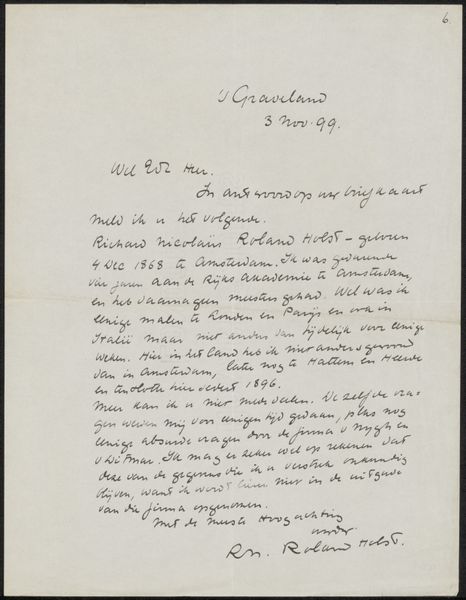 6.
's Graveland
3 Nov. 99.
Wel Edl Heer.
In antwoord op uw briefkaart
meld ik u het volgende.
Richard Nicolaüs Roland Holst – geboren
4 Dec 1868 te Amsterdam. Ik was gedurende
vier jaren aan de Rijks Akademie te Amsterdam,
en heb daarna geen meesters gehad. Wel was ik
eenige malen te Londen en Parijs en ora in
Italië maar niet anders dan tijdelijk voor eenige
weken. Hier in het land heb ik niet anders gewoond
dan in Amsterdam, later nog te Hattem en Heerde
en ten slotte hier sedert 1896.
Meer kan ik u niet mededeelen. De zelfde vra-
gen werden mij voor eenigen tijd gedaan, plus nog
eenige absurde vragen door de firma v Nijgh en
v Ditmar. Ik mag er zeker wel op rekenen dat
deze van de gegevens die ik u verstrek onkundig
blijven, want ik word liever niet in de uitgave
van die firma opgenomen.
Met de meeste Hoogachting
RN. Roland Holst.